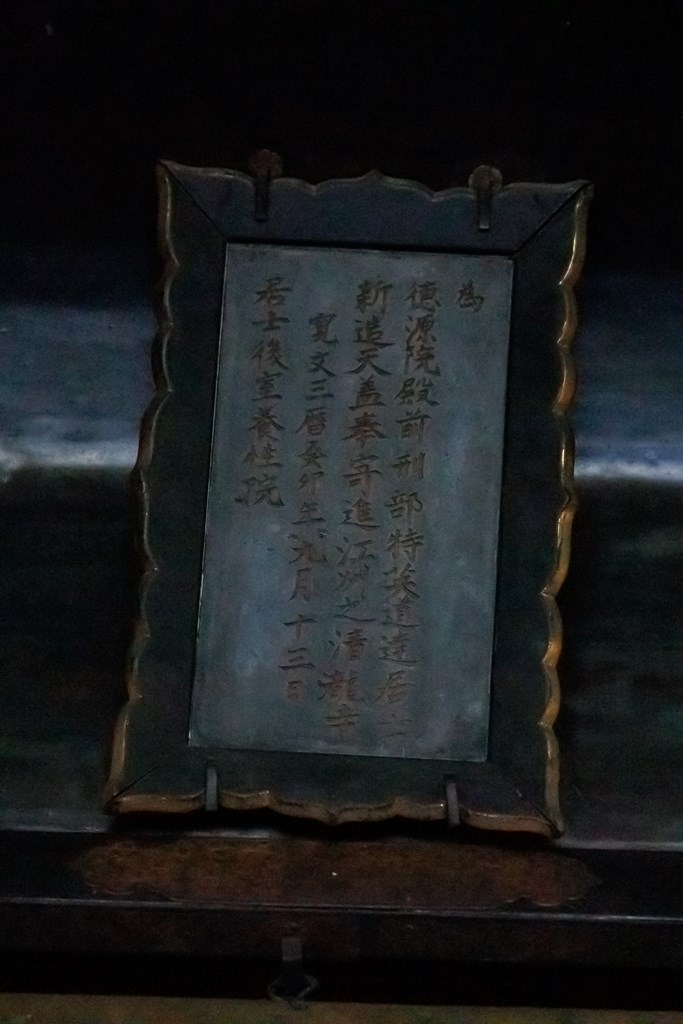 為
德源院殿前刑部特英道達居士
新造天盖奉寄進江州之清瀧寺
寛文三暦癸卯年九月十三日
居士後室養性院